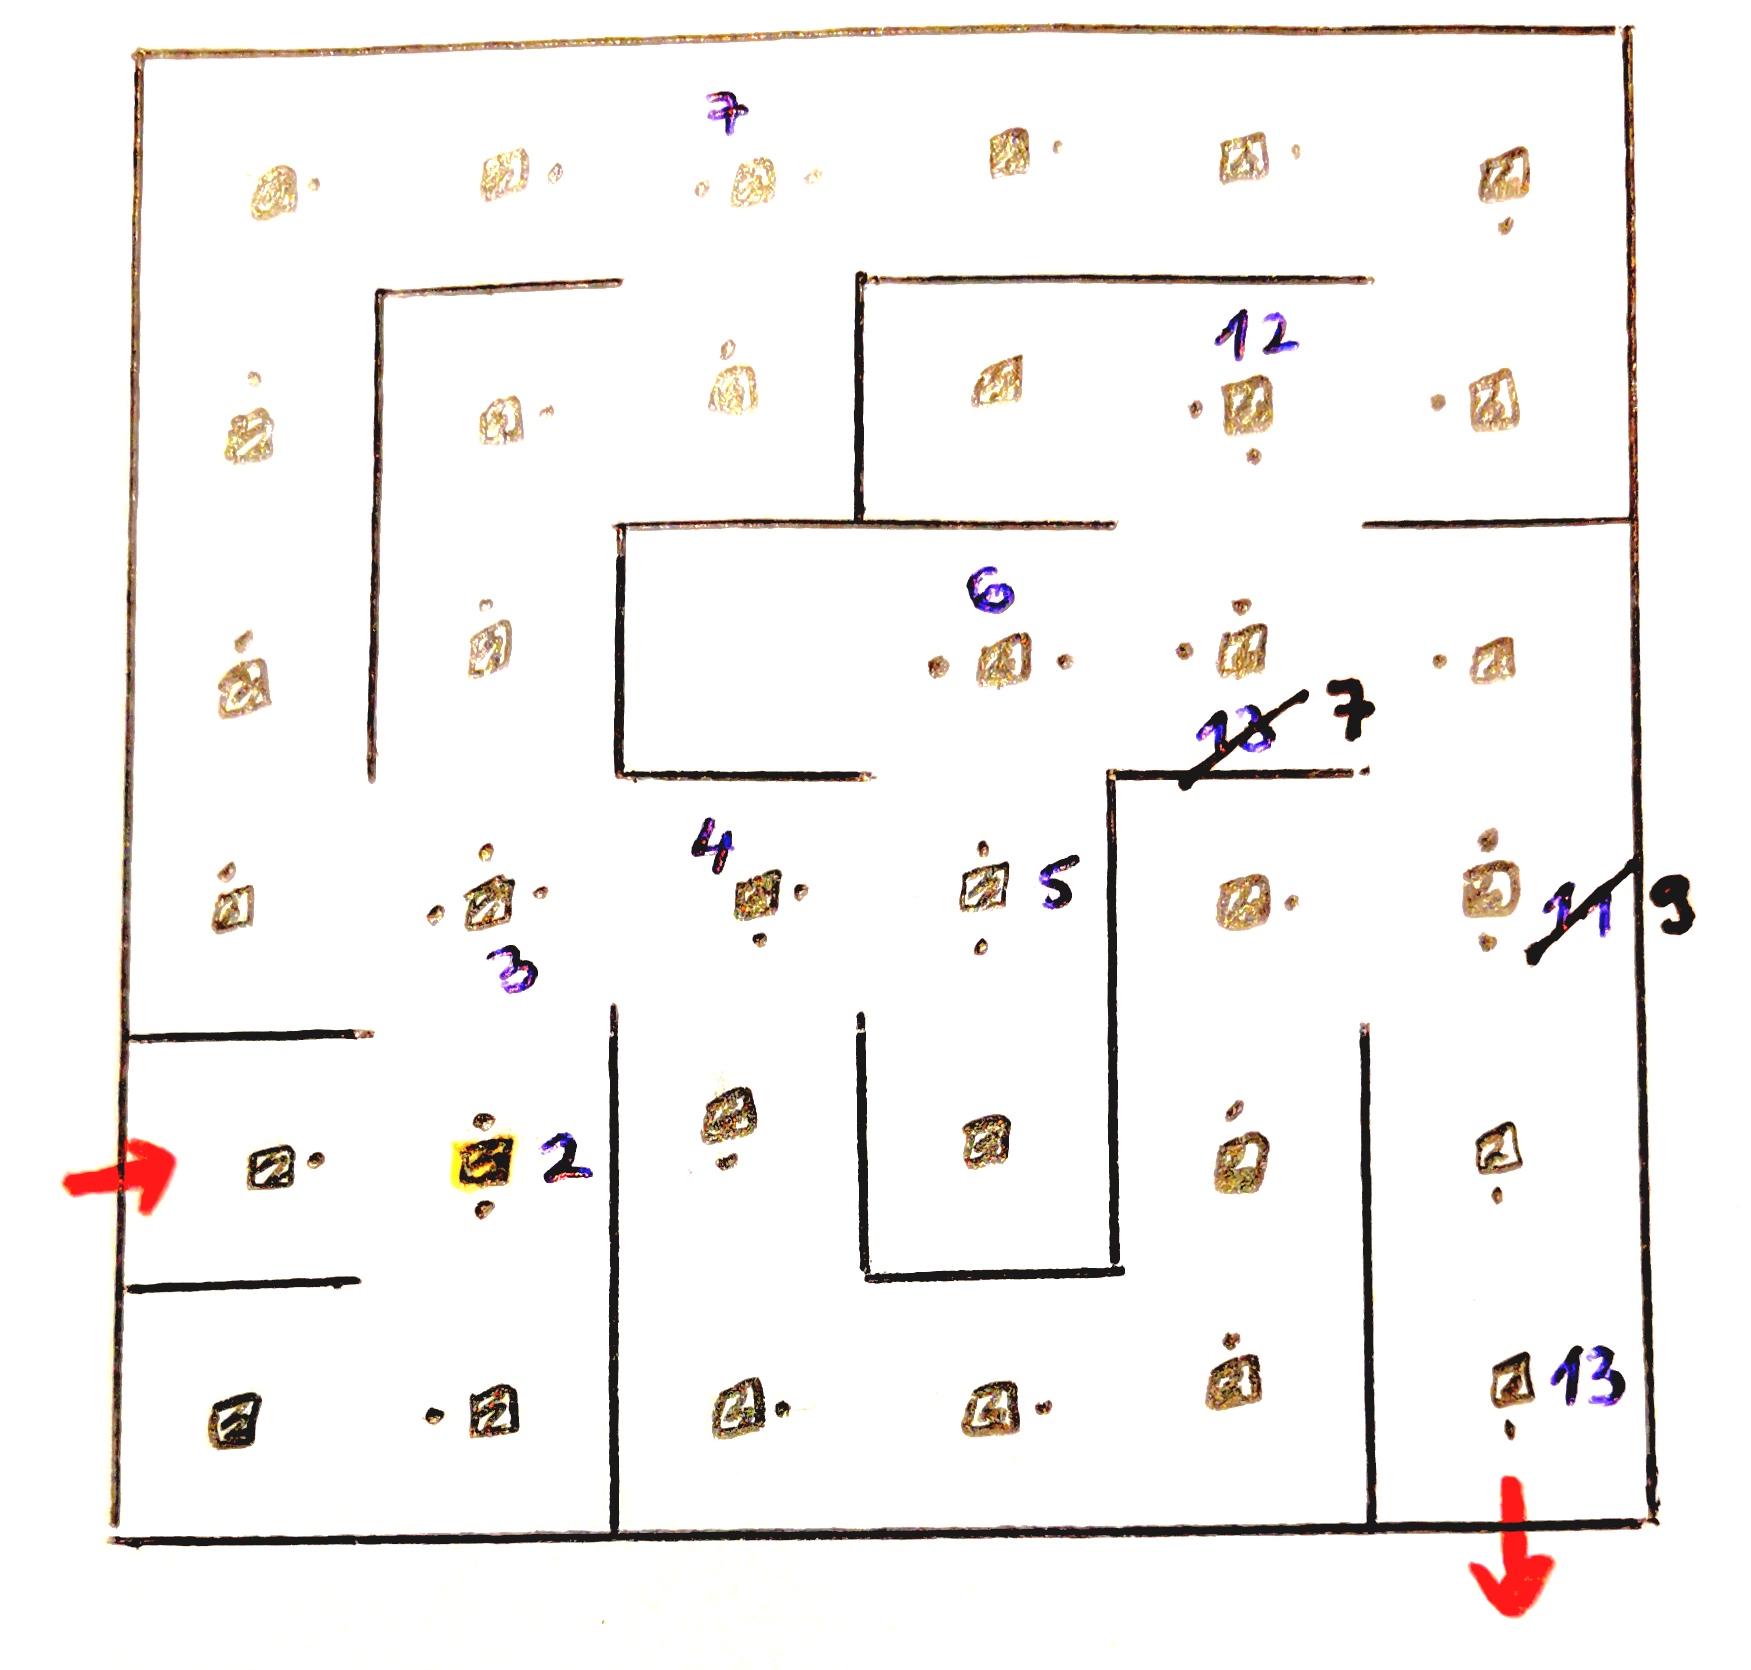 7
12
6
13 7
4
5
11 9
3
2
13